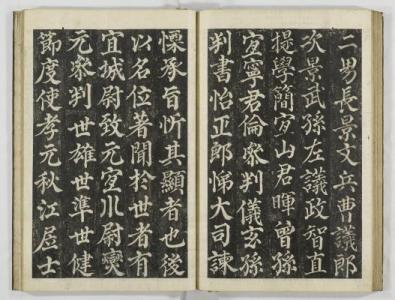 二男長景文兵曹議郎
次景武孫左議政智直
提學簡宜山君暉曾孫
宜寧君倫叅判儀玄孫
判書怡正郎悌大司諫
懍承旨忻其顯者也後
以名位著聞於世者有
宜城尉致元宜川尉燮
元叅判世雄世準世健
節度使孝元秋江居士